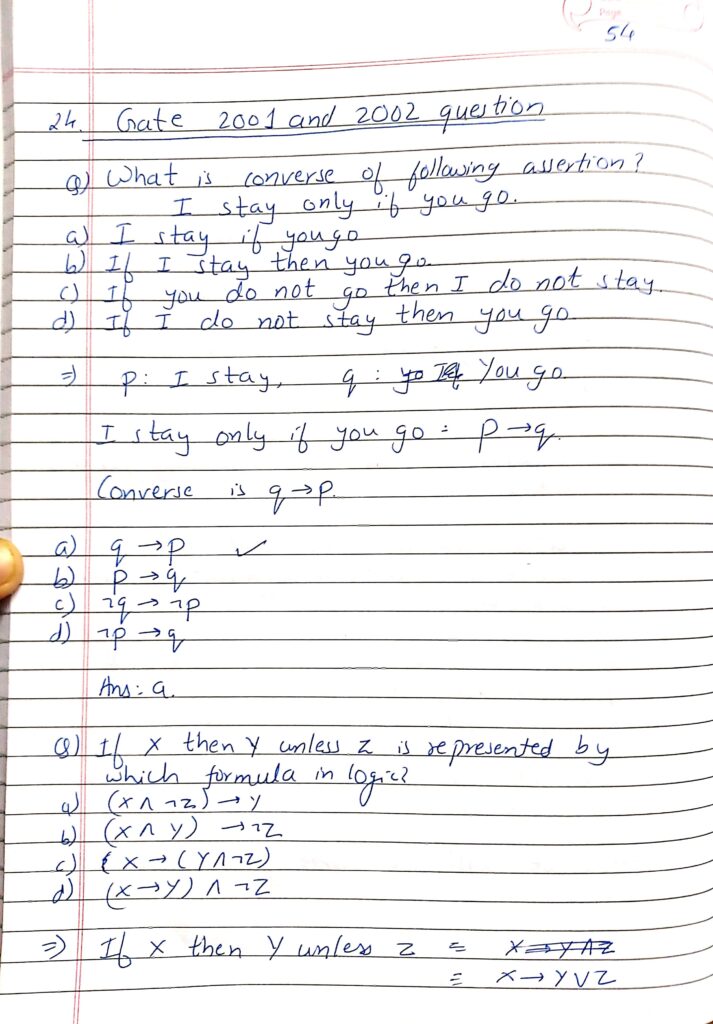 Page
54
24. Gate 2001 and 2002 question
Q) What is converse of following assertion?
I stay only if you go.
a) I stay if you go
b) If I stay then you go.
c) If you do not go then I do not stay.
d) If I do not stay then you go.
⇒ p: I stay, q: You go.
I stay only if you go = p → q.
Converse is q → p.
a) q → p ✓
b) p → q
c) ¬q → ¬p
d) ¬p → q
Ans: a.
Q) If X then Y unless Z is represented by
which formula in logic?
a) (X ∧ ¬Z) → Y
b) (X ∧ Y) → ¬Z
c) X → (Y ∧ ¬Z)
d) (X → Y) ∧ ¬Z
⇒ If X then Y unless Z = X → Y ∧ Z
= X → Y ∨ Z